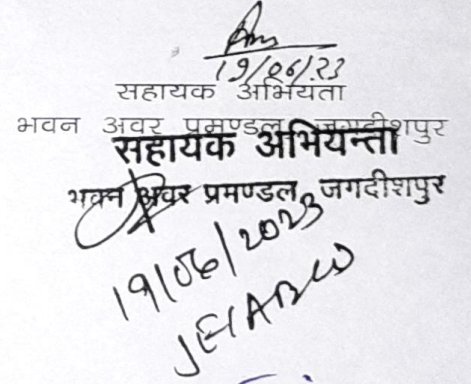 19/06/23
सहायक अभियंता
भवन अवर प्रमण्डल, जगदीशपुर
सहायक अभियन्ता
भवन अवर प्रमण्डल, जगदीशपुर
19/06/2023